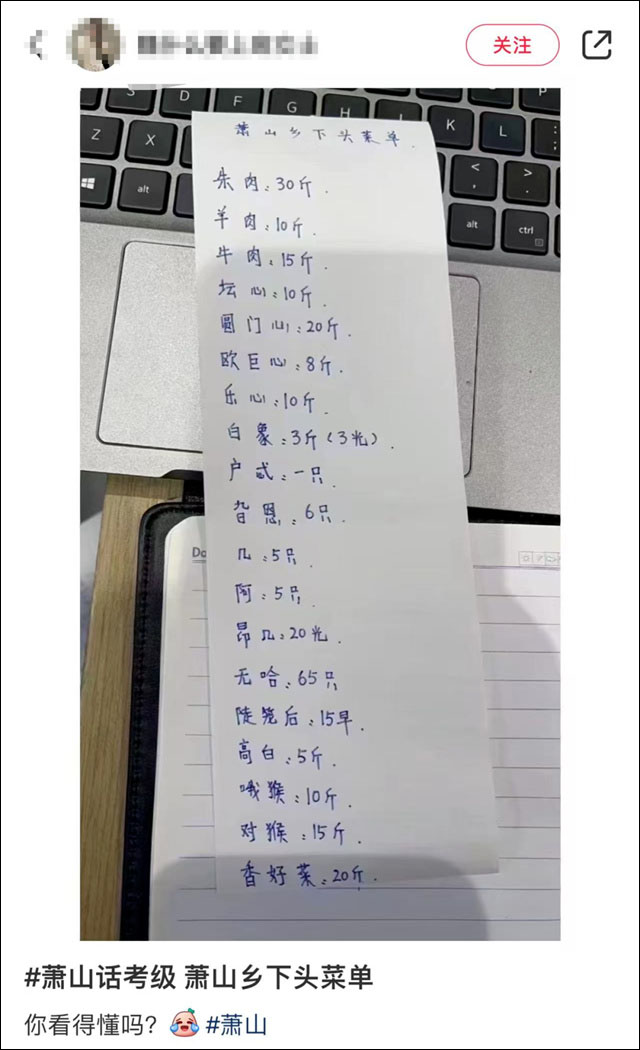 关注
S D F G H J K L
Z X < >
alt alt ctrl
萧山乡下头菜单.
朱肉:30斤.
羊肉:10斤.
牛肉:15斤.
坛心:10斤.
圆门心:20斤.
欧巨心:8斤.
乐心:10斤.
白象:3斤(3光).
户式:一只.
皆恩:6只.
几:5只.
阿:5只.
昂几:20光.
无哈:65只
陡笼后:15早.
高白:5斤.
哦猴:10斤.
对猴:15斤.
香好菜:20斤.
#萧山话考级 萧山乡下头菜单
你看得懂吗? #萧山